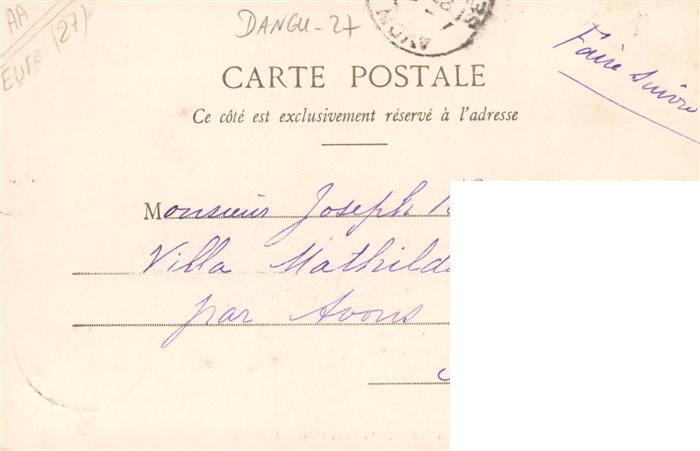 AA
Eure (27)
DANGU-27
AVON
Faire suivre
CARTE POSTALE
Ce côté est exclusivement réservé à l'adresse
Monsieur Joseph
Villa Mathilde
par Avons